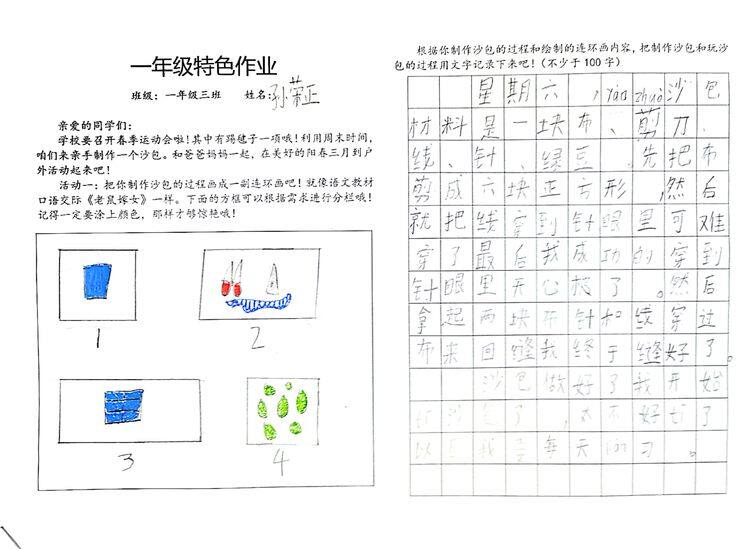 一年级特色作业
班级：一年级三班 姓名：孙荣正
亲爱的同学们：
学校要召开春季运动会啦！其中有踢毽子一项哦！利用周末时间，
咱们来亲手制作一个沙包。和爸爸妈妈一起，在美好的阳春三月到户
外活动起来吧！
活动一：把你制作沙包的过程画成一副连环画吧！就像语文教材
口语交际《老鼠嫁女》一样。下面的方框可以根据需求进行分栏哦！
记得一定要涂上颜色，那样才够惊艳哦！
1
2
3
4
根据你制作沙包的过程和绘制的连环画内容，把制作沙包和玩沙
包的过程用文字记录下来吧！（不少于100字）
星期六，yán zhuō沙包
材料是一块布、剪刀、
线、针、绿豆。先把布
剪成六块正方形，然后
就把线穿到针眼里可难
穿了最后我成功的穿到
针眼里开心极了。然后
拿起两块布针和线穿过
布来回缝我终于缝好了。
沙包做好了我开始
沙包了，太不好了
以后我要每天习。